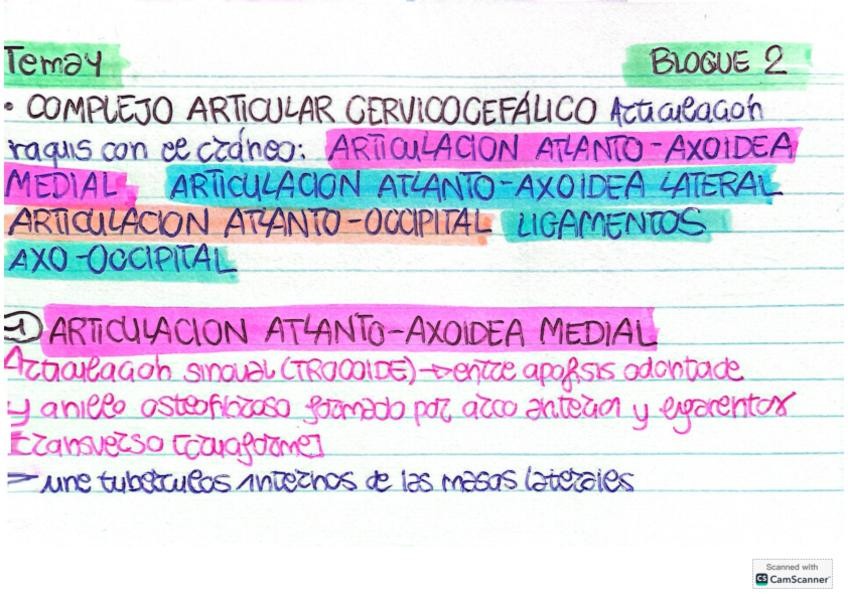 Tema 4 BLOQUE 2
• COMPLEJO ARTICULAR CERVICOCEFÁLICO Articulación
raquis con el cráneo: ARTICULACION ATLANTO-AXOIDEA
MEDIAL ARTICULACION ATLANTO-AXOIDEA LATERAL
ARTICULACION ATLANTO-OCCIPITAL LIGAMENTOS
AXO-OCCIPITAL
1 ARTICULACION ATLANTO-AXOIDEA MEDIAL
Articulación sinovial (TROCOIDE) → entre apofisis odontoide
y anillo osteofibroso formado por arco anterior y ligamentos
transverso [cruciforme]
→ une tuberculos internos de las masas laterales
Scanned with
CS CamScanner